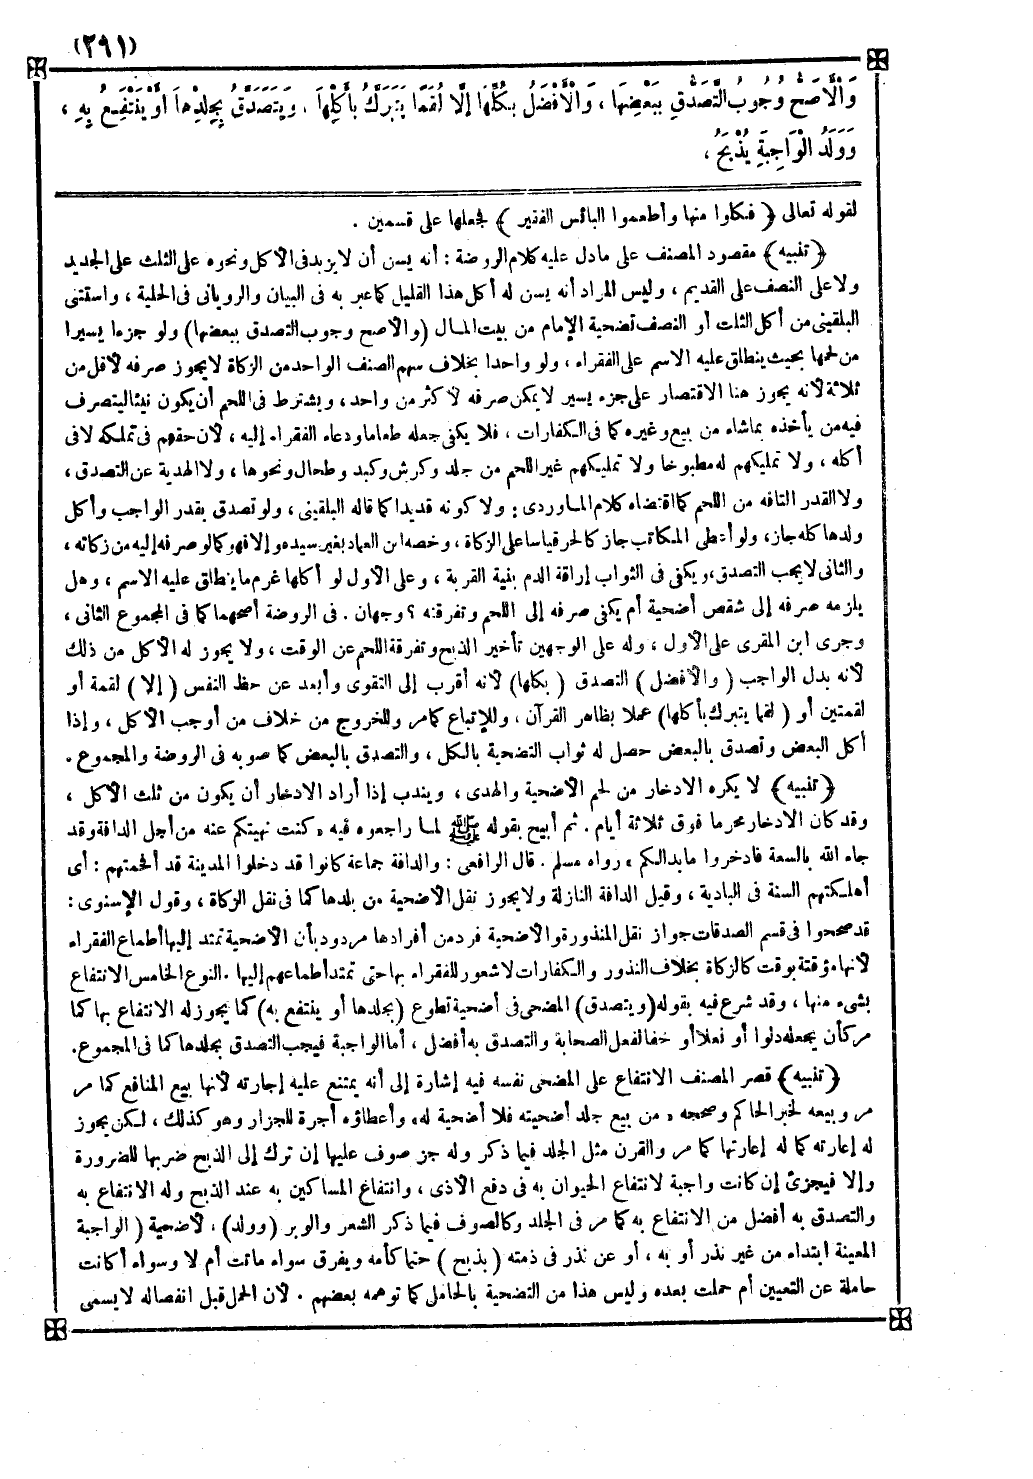 (٢٩١)
وَالْأَصَحُّ وُجُوبُ التَّصَدُّقِ بِبَعْضِهَا ، وَالْأَفْضَلُ بِكُلِّهَا إِلَّا لُقَمًا يَتَبَرَّكُ بِأَكْلِهَا ، وَيَتَصَدَّقُ بِجِلْدِهَا أَوْ يَنْتَفِعُ بِهِ ،
وَوَلَدُ الْوَاجِبَةِ يُذْبَحُ ،
لقوله تعالى ﴿ فكلوا منها وأطعموا البائس الفقير ﴾ فجعلها على قسمين .
﴿ تنبيه ﴾ مقصود المصنف على مادل عليه كلام الروضة : أنه يسن أن لا يزيد فى الأكل ونحوه على الثلث على الجديد
ولا على النصف على القديم ، وليس المراد أنه يسن له أكل هذا القليل كما عبر به فى البيان والرويانى فى الحلية ، واستثنى
البلقينى من أكل الثلث أو النصف تضحية الإمام من بيت المال (والأصح وجوب التصدق ببعضها) ولو جزءا يسيرا
من لحمها بحيث ينطلق عليه الاسم على الفقراء ، ولو واحدا بخلاف سهم الصنف الواحد من الزكاة لا يجوز صرفه لأقل من
ثلاثة لأنه يجوز هنا الاقتصار على جزء يسير لا يمكن صرفه لأكثر من واحد ، ويشترط فى اللحم أن يكون نيئا ليتصرف
فيه من يأخذه بما شاء من بيع وغيره كما فى الكفارات ، فلا يكفى جعله طعاما ودعاء الفقراء إليه ، لأن حقهم فى تملكه لا فى
أكله ، ولا تمليكهم له مطبوخا ولا تمليكهم غير اللحم من جلد وكرش وكبد وطحال ونحوها ، ولا الهدية عن التصدق ،
ولا القدر التافه من اللحم كما اقتضاه كلام الماوردى : ولا كونه قديدا كما قاله البلقينى ، ولو تصدق بقدر الواجب وأكل
ولدها كله جاز ، ولو أعطى المكاتب جاز كالحر قياسا على الزكاة ، وخصه ابن العماد بغير سيده وإلا فهو كما لو صرفه إليه من زكاته ،
والثانى لا يجب التصدق ، ويكفى فى الثواب إراقة الدم بنية القربة ، وعلى الأول لو أكلها غرم ما ينطلق عليه الاسم ، وهل
يلزمه صرفه إلى شقص أضحية أم يكفى صرفه إلى اللحم وتفرقته ؟ وجهان . فى الروضة أصحهما كما فى المجموع الثانى ،
وجرى ابن المقرى على الأول ، وله على الوجهين تأخير الذبح وتفرقة اللحم عن الوقت ، ولا يجوز له الأكل من ذلك
لأنه بدل الواجب ( والأفضل ) التصدق ( بكلها) لأنه أقرب إلى التقوى وأبعد عن حظ النفس ( إلا ) لقمة أو
لقمتين أو ( لقما يتبرك بأكلها) عملا بظاهر القرآن ، وللإتباع كما مر وللخروج من خلاف من أوجب الأكل ، وإذا
أكل البعض وتصدق بالبعض حصل له ثواب التضحية بالكل ، والتصدق بالبعض كما صوبه فى الروضة والمجموع .
﴿ تنبيه ﴾ لا يكره الادخار من لحم الأضحية والهدى ، ويندب إذا أراد الادخار أن يكون من ثلث الأكل ،
وقد كان الادخار محرما فوق ثلاثة أيام . ثم أبيح بقوله ﷺ لما راجعوه فيه « كنت نهيتكم عنه من أجل الدافة وقد
جاء الله بالسعة فادخروا ما بدا لكم » رواه مسلم . قال الرافعى : والدافة جماعة كانوا قد دخلوا المدينة قد أقحمتهم : أى
أهلكتهم السنة فى البادية ، وقيل الدافة النازلة ولا يجوز نقل الأضحية من بلدها كما فى نقل الزكاة ، وقول الإسنوى :
قد صححوا فى قسم الصدقات جواز نقل المنذورة والأضحية فرد من أفرادها مردود بأن الأضحية تمتد إليها أطماع الفقراء
لأنها مؤقتة بوقت كالزكاة بخلاف النذور والكفارات لا شعور للفقراء بها حتى تمتد أطماعهم إليها . النوع الخامس الانتفاع
بشىء منها ، وقد شرع فيه بقوله (ويتصدق) المضحى فى أضحية تطوع (بجلدها أو ينتفع به) كما يجوز له الانتفاع بها كما
مر كأن يجعله دلوا أو نعلا أو خفا لفعل الصحابة والتصدق به أفضل ، أما الواجبة فيجب التصدق بجلدها كما فى المجموع.
﴿ تنبيه ﴾ قصر المصنف الانتفاع على المضحى نفسه فيه إشارة إلى أنه يمتنع عليه إجارته لأنها بيع المنافع كما مر
مر وبيعه لخبر الحاكم وصححه « من بيع جلد أضحيته فلا أضحية له » وأعطاؤه أجرة للجزار وهو كذلك ، لكن يجوز
له إعارته كما له إعارتها كما مر والقرن مثل الجلد فيما ذكر وله جز صوف عليها إن ترك إلى الذبح ضربها للضرورة
وإلا فيجزئ إن كانت واجبة لانتفاع الحيوان به فى دفع الأذى ، وانتفاع المساكين به عند الذبح وله الانتفاع به
والتصدق به أفضل من الانتفاع به كما مر فى الجلد وكالصوف فيما ذكر الشعر والوبر (وولد) ، لأضحية ( الواجبة
المعينة ابتداء من غير نذر أو به ، أو عن نذر فى ذمته ( يذبح ) حتما كأمه ويفرق سواء ماتت أم لا وسواء أكانت
حاملة عن التعيين أم حملت بعده وليس هذا من التضحية بالحامل كما توهمه بعضهم . لأن الحمل قبل انفصاله لا يسمى